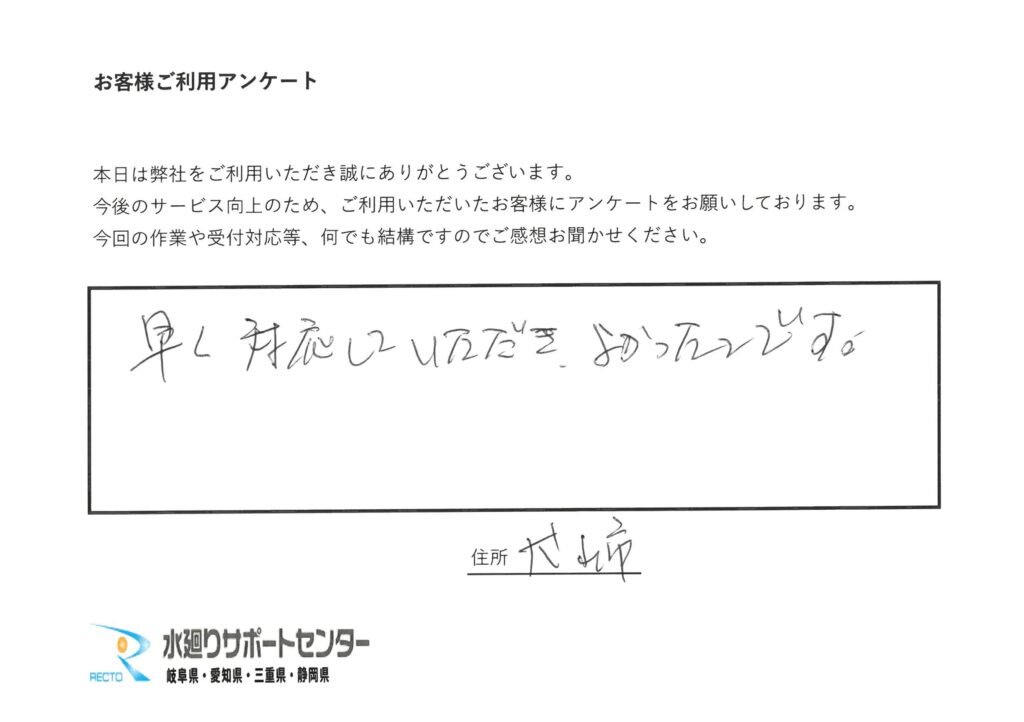 お客様ご利用アンケート
本日は弊社をご利用いただき誠にありがとうございます。
今後のサービス向上のため、ご利用いただいたお客様にアンケートをお願いしております。
今回の作業や受付対応等、何でも結構ですのでご感想お聞かせください。
早く対応していただき、よかったです。
住所 市
RECTO
水廻りサポートセンター
岐阜県・愛知県・三重県・静岡県